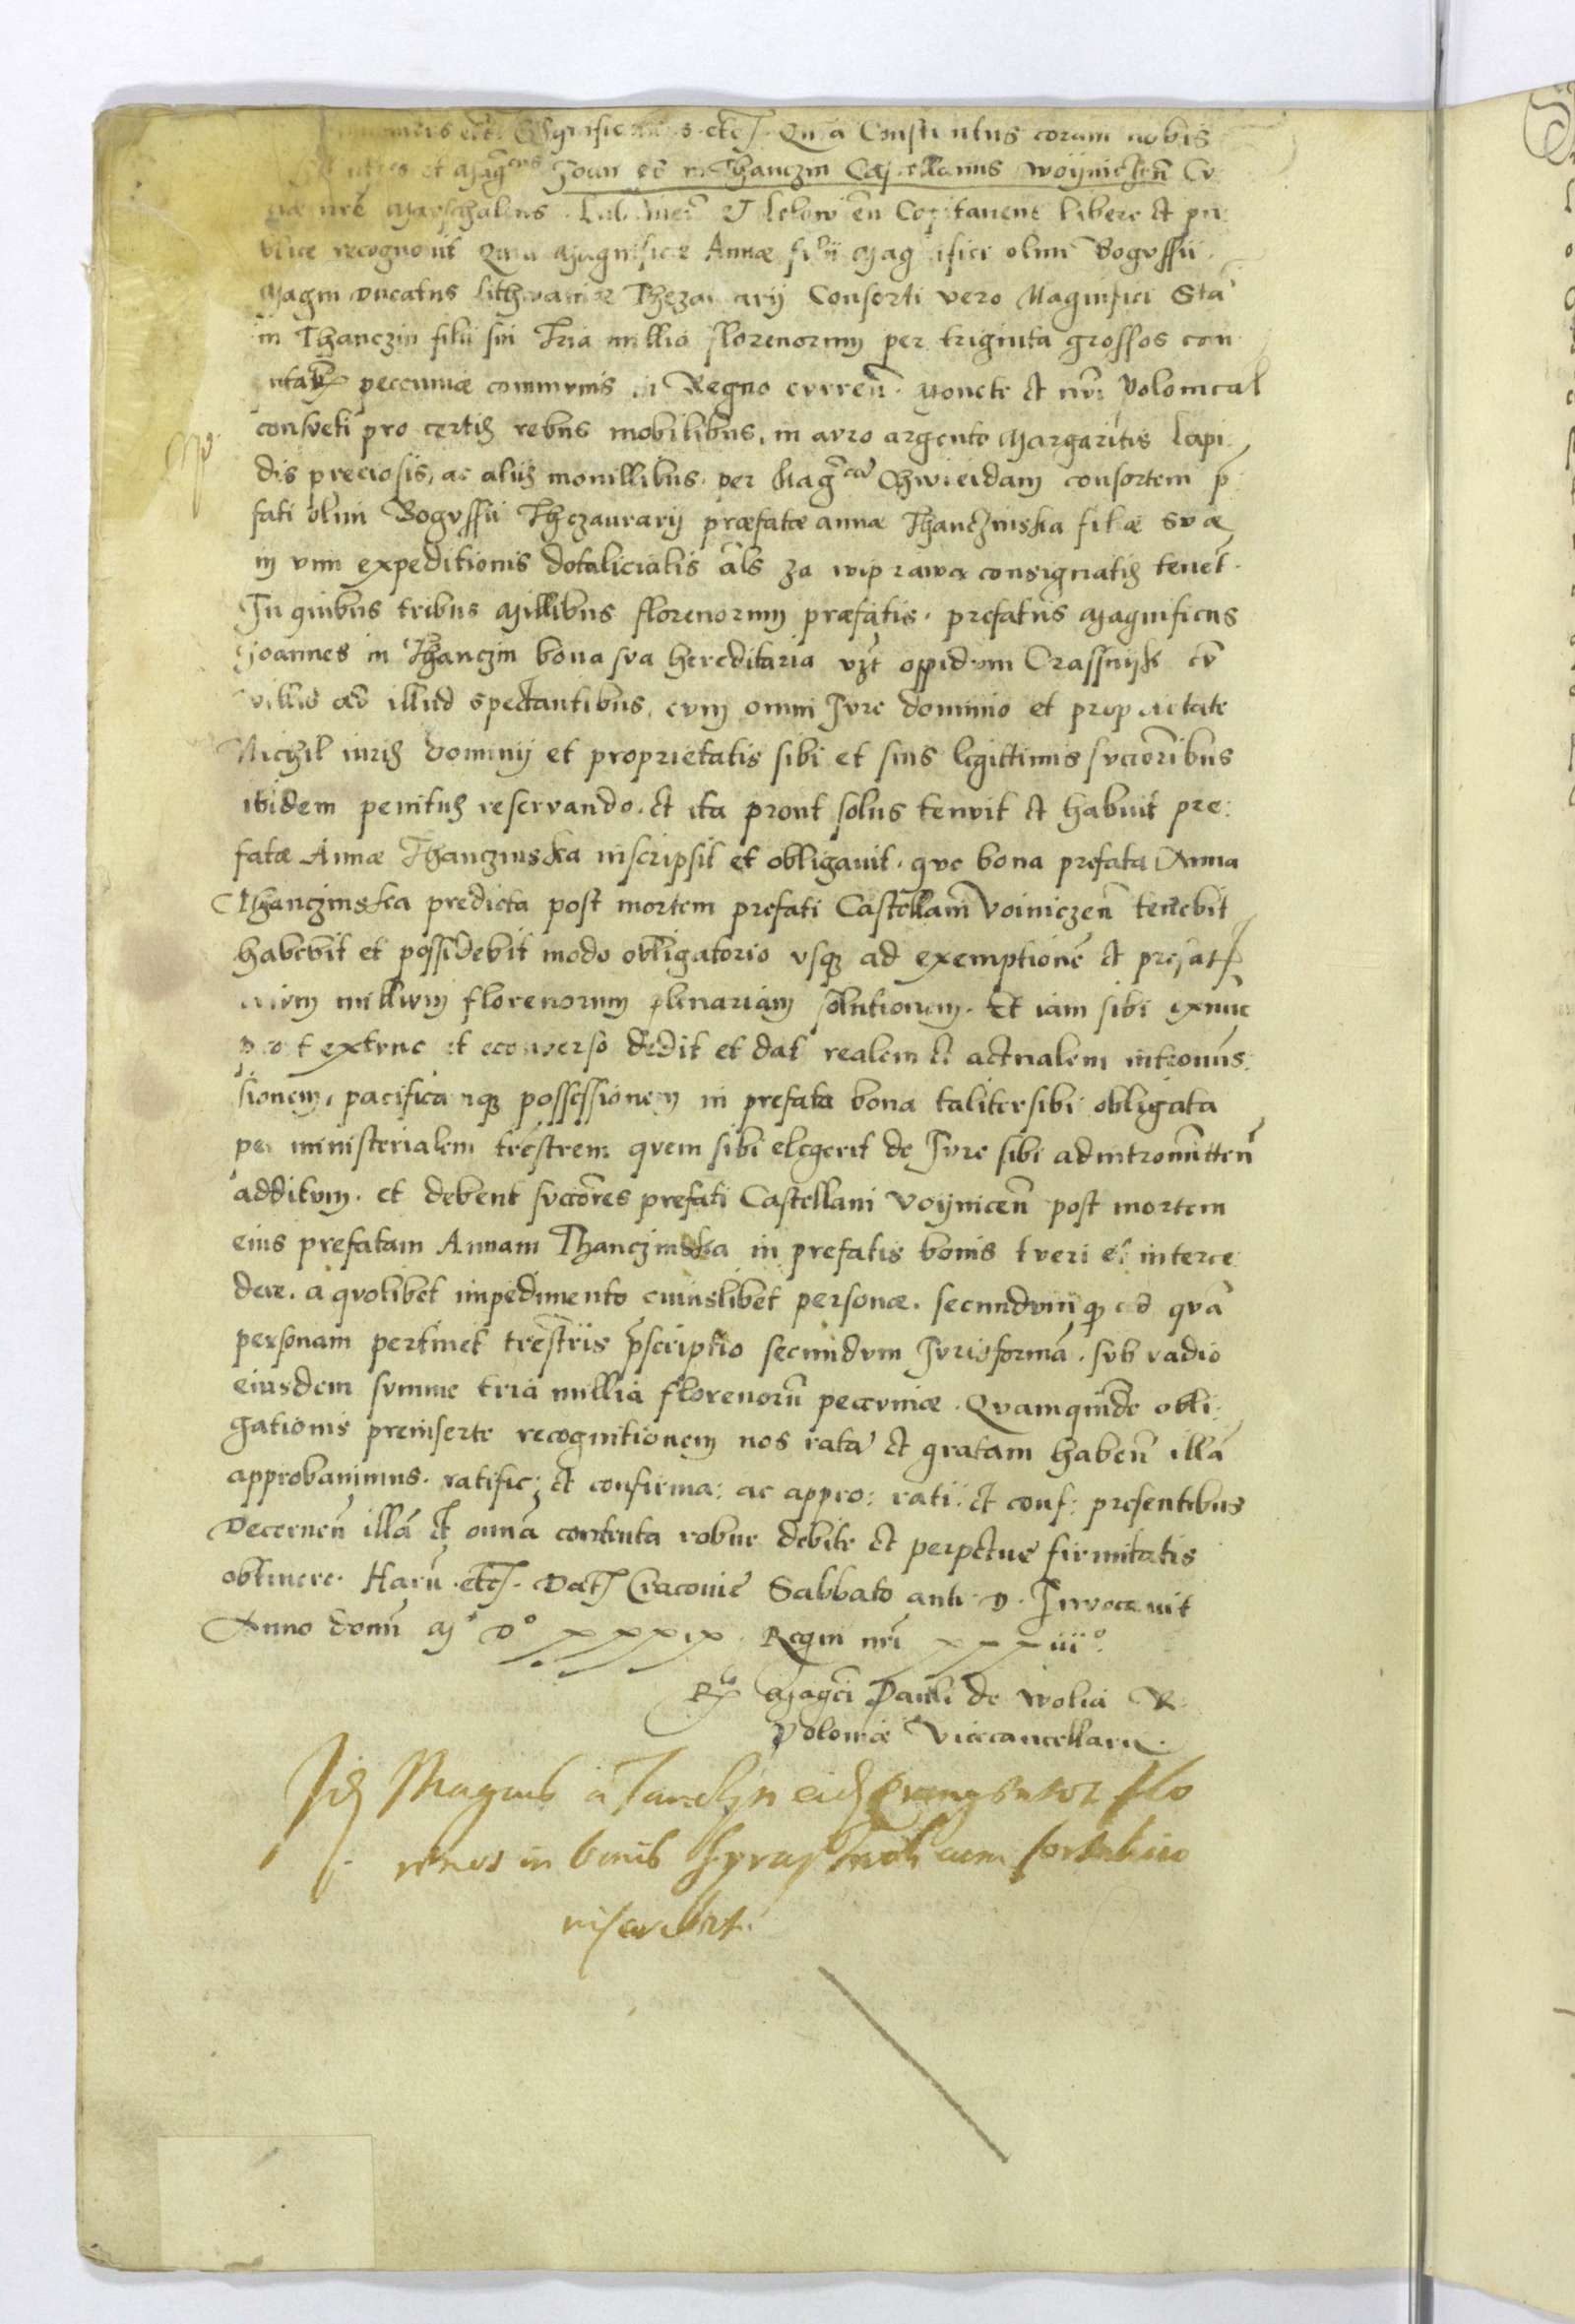 etc. Significamus etc. Quia Constitutus coram nobis
et Mag̃cus Joan̄es in Thanczin Castellanus Woijniczen̄ Cu
riae nr̃e Marschalcus Lublinen̄ et Lelowien̄ Capitaneus libere et pu
blice recognovit Quia Magnificae Annae filii Magnifici olim Bogussii
Magni Ducatus Lithwaniae Thezaurarij Consorti vero Magnifici Sta
in Thanczin filii sui Tria millia florenorum per triginta grossos con
putan̄ pecuniae communis in Regno curren̄. Monete et nr̄i Polonical
consueti pro certis rebus mobilibus, in auro argento Margaritis Lapi
dis preciosis, ac aliis monillibus per Mag̃cam Chwieidam consortem p̄
fati olim Bogussii Thezaurarij praefatae annae Thanczinska filae suae
in vim expeditionis dotalicialis als za wiprawa consignatis tenet.
In quibus tribus Millibus florenorum praefatis. prefatus Magnificus
Joannes in Thanczin bona sua hereditaria vzt oppidum Crassnijk cū
villis ad illud spectantibus, cum omni Jure dominio et proprietate
Nichil iuris dominij et proprietatis sibi et suis legittimis succōribus
ibidem penitus reservando. et ita prout solus tenuit et habuit pre:
fatae Annae Thanczinska inscripsit et obligauit. que bona prefata Anna
Thanczinska predicta post mortem prefati Castellani Voiniczen̄ tenebit
habebit et possidebit modo obligatorio usq̨ ad exemptionē et prefat
trium millium florenorum plenariam solutionem. Et iam sibi exnunc
prout extunc et econuerso dedit et dat realem et actualem intromis
sionem, pacificamq̨ possessionem in prefata bona taliter sibi obligata
per ministerialem trestrem quem sibi elegerit de Jure sibi ad intromitten̄
additum. et debent succōres prefati Castellani Voijnicen̄ post mortem
eius prefatam Annam Thanczinska in prefatis bonis tueri et interce
dere. a quolibet impedimento cuiuslibet personae. secundum q̨ ad quā
personam pertinet trestris p̄scriptio secundum Juris formā. sub vadio
eiusdem summe tria millia florenorū pecuniae. Quamquidē obli:
gationis preinserte recognitionem nos ratā et gratam haben̄ illā
approbauimus. ratific: et confirma: ac appro: rati: et conf: presentibus
Decernen̄ illā et omnā contenta robur debite et perpetue firmitatis
obtinere. Harū. etc. Dat Cracovie Sabbato ante D. Invocavit
Anno domī Mº Dº xxxix. Regni nr̄i xxxiiiº.
Rlo Magci Pauli de Wolia R.
Poloniae Vicecancellarii.
Id Magcus a Tanczyn
in bonis